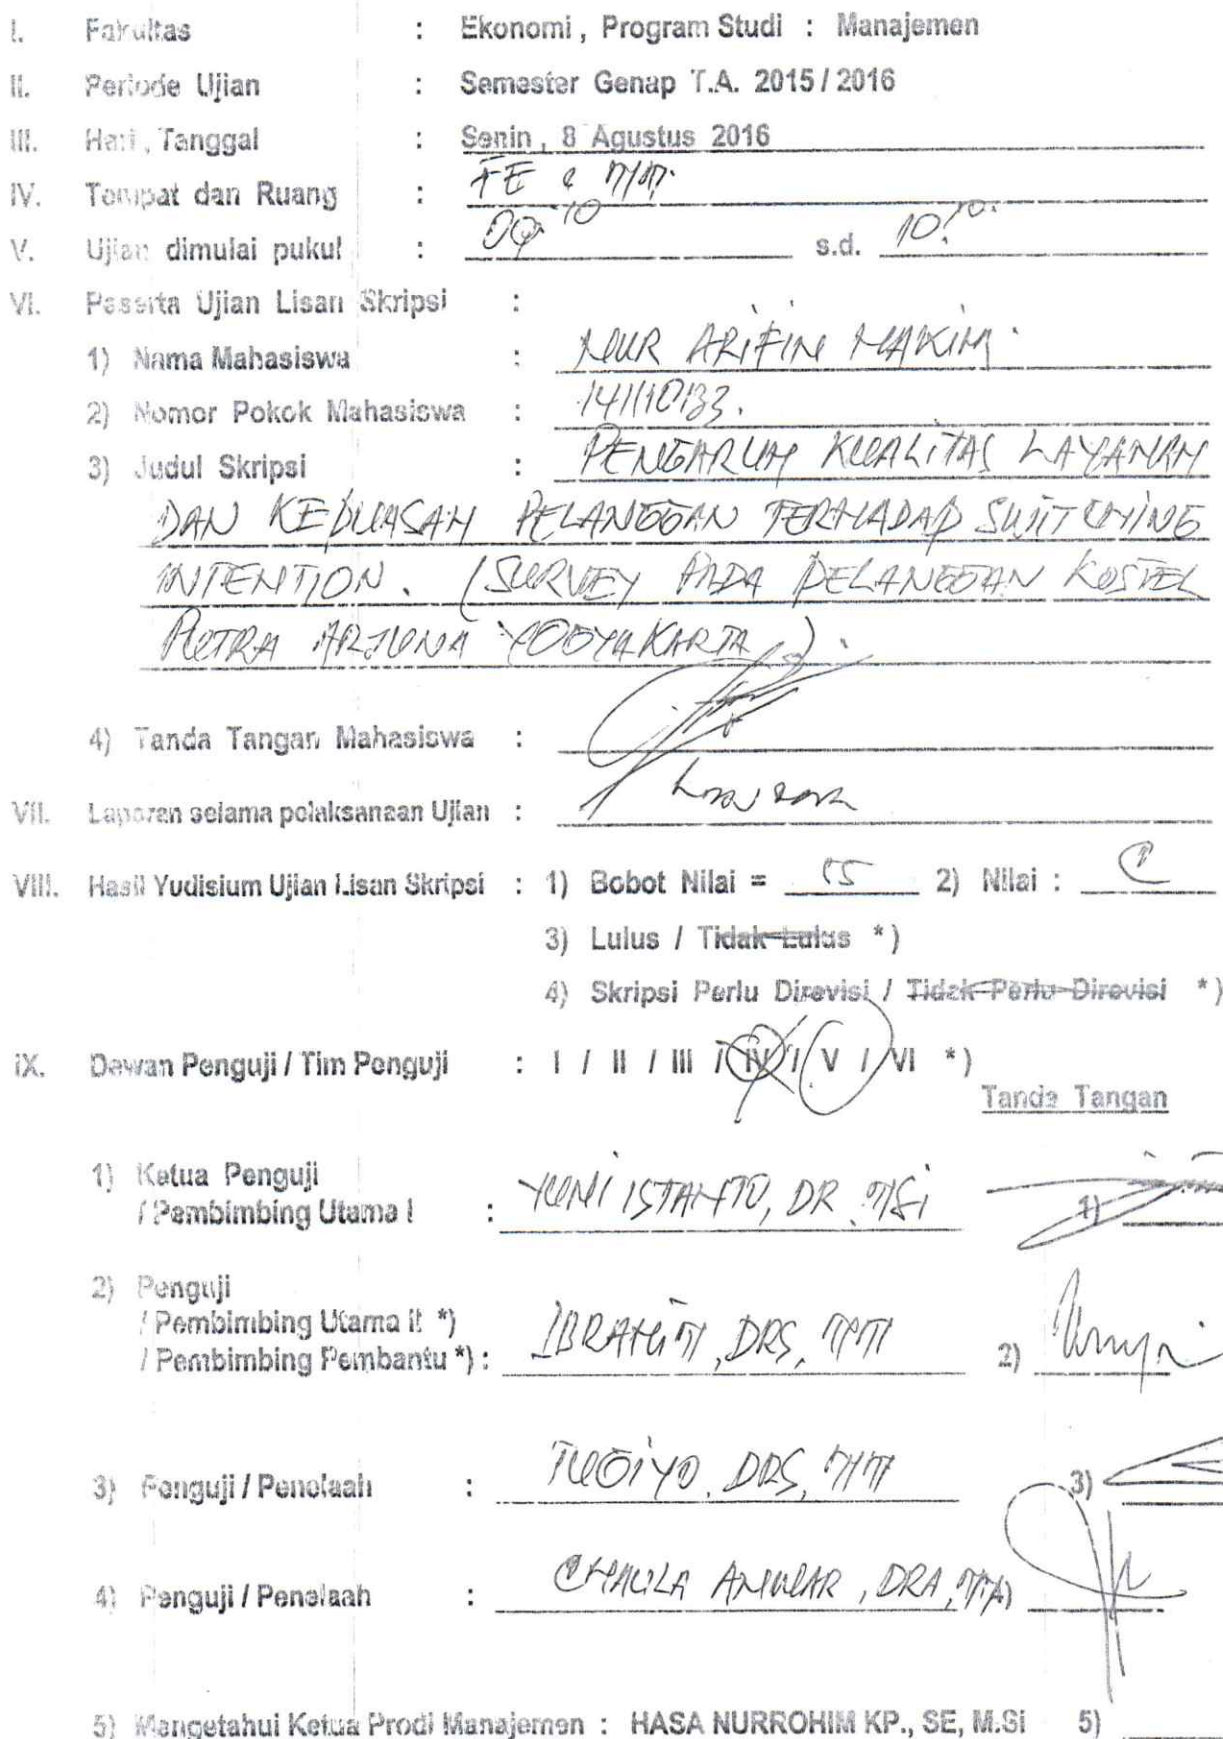 I. Fakultas : Ekonomi, Program Studi : Manajemen
II. Periode Ujian : Semester Genap T.A. 2015 / 2016
III. Hari, Tanggal : Senin, 8 Agustus 2016
IV. Tempat dan Ruang : FE
V. Ujian dimulai pukul : 09.10 s.d. 10.10.
VI. Peserta Ujian Lisan Skripsi :
1) Nama Mahasiswa : NUR ARIFIN HAKIM
2) Nomor Pokok Mahasiswa : 141110133.
3) Judul Skripsi : PENGARUH KUALITAS LAYANAN
DAN KEPUASAN PELANGGAN TERHADAP SWITCHING
INTENTION. (SURVEY PADA PELANGGAN KOSTEL
PUTRA ARJUNA YOGYAKARTA).
4) Tanda Tangan Mahasiswa :
VII. Laporan selama pelaksanaan Ujian :
VIII. Hasil Yudisium Ujian Lisan Skripsi : 1) Bobot Nilai = 2) Nilai :
3) Lulus / Tidak Lulus *)
4) Skripsi Perlu Direvisi / Tidak Perlu Direvisi *)
IX. Dewan Penguji / Tim Penguji : I / II / III / IV / V / VI *)
Tanda Tangan
1) Ketua Penguji
/ Pembimbing Utama I : YUNI ISTANTO, DR. MSi 1)
2) Penguji
/ Pembimbing Utama II *)
/ Pembimbing Pembantu *) : IBRAHIM, DRS, MM 2)
3) Penguji / Penelaah : TUGIYO, DRS, MM 3)
4) Penguji / Penelaah : ANWAR, DRA,
5) Mengetahui Ketua Prodi Manajemen : HASA NURROHIM KP., SE, M.Si 5)